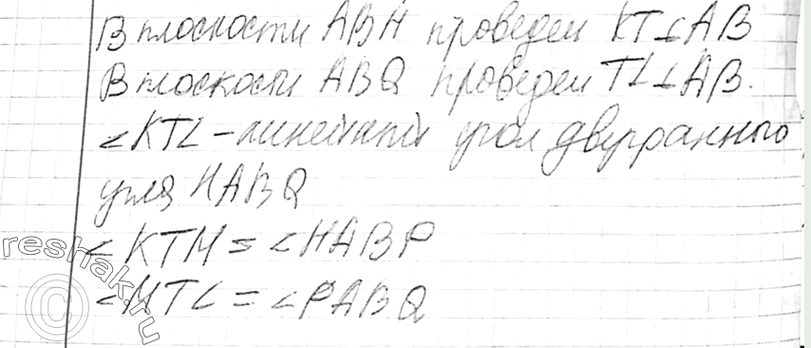 В плоскости ABH проведем KT⊥AB
В плоскости ABQ проведем TL⊥AB.
∠KTL - линейный угол двугранного
угла HABQ
∠KTM = ∠HABP
∠MTL = ∠PABQ
reshak.ru